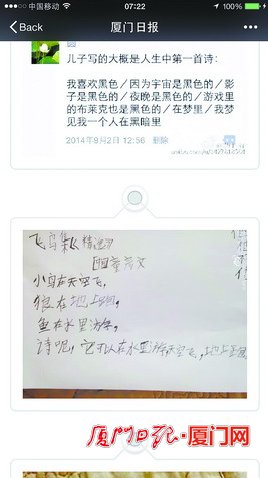 中国移动 07:22
Back 厦门日报
儿子写的大概是人生中第一首诗：
我喜欢黑色／因为宇宙是黑色的／影
子是黑色的／夜晚是黑色的／游戏里
的布莱克也是黑色的／在梦里／我梦
见我一个人在黑暗里
2014年9月2日 12:56 删除
飞鸟集《精选》
小鸟在天空飞，
狼在地上跑，
鱼在水里游，
诗呢，它可以在水里游天空飞，地上跑
厦门日报·厦门网